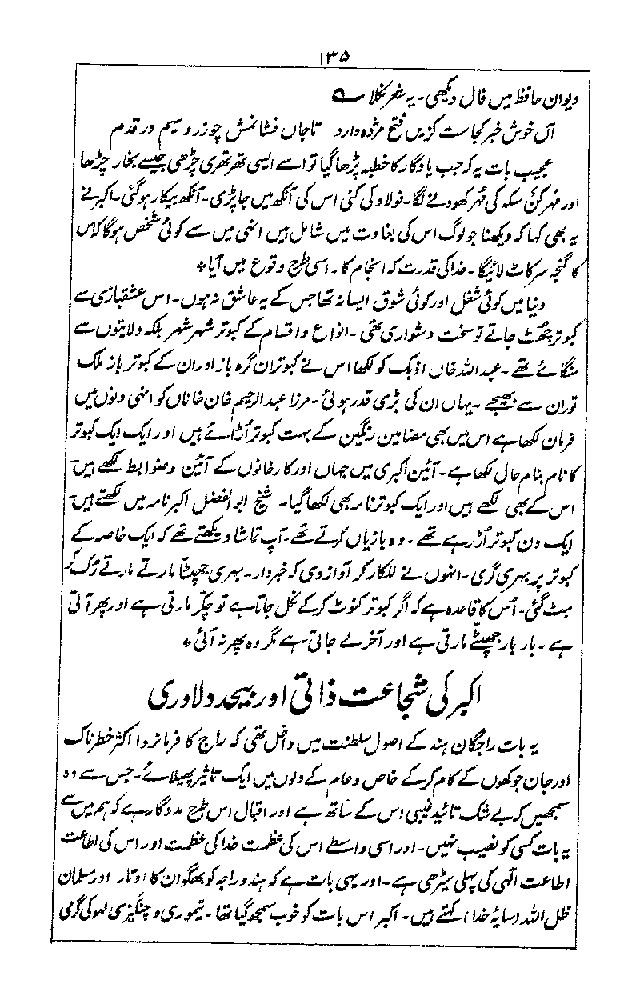 ۱۳۵
دیوان حافظ میں فال دیکھی۔ یہ شعر نکلا ے
آں خوش خبر کجاست کزیں فتح مژدہ داد تا جاں فشانمش چو زر و سیم در قدم
عجیب بات یہ کہ جب یادگار کا خطبہ پڑھا گیا تو اسے ایسی تھرتھری چڑھی جیسے بخار چڑھا
اور مہر کن سکہ کی مہر کھودنے لگا۔ فولاد کی کنی اس کی آنکھ میں جا پڑی۔ آنکھ بیکار ہو گئی۔ اکبر نے
یہ بھی کہا کہ دیکھنا جو لوگ اس کی بغاوت میں شامل ہیں انہی میں سے کوئی شخص ہوگا کہ اس
کا گنجہ سر کاٹ لائیگا۔ خدا کی قدرت کہ انجام کار اسی طرح وقوع میں آیا *
دنیا میں کوئی شغل اور کوئی شوق ایسا نہ تھا جس کے یہ عاشق نہ ہوں۔ اس عشقبازی سے
کبوتر چھٹ جاتے تو سخت دشواری تھی۔ انواع و اقسام کے کبوتر شہر شہر بلکہ ولایتوں سے
منگائے تھے۔ عبداللہ خاں ازبک کو لکھا اس نے کبوتران گرہ باز اور ان کے کبوتر باز ملک
توران سے بھیجے۔ یہاں ان کی بڑی قدر ہوئی۔ مرزا عبدالرحیم خان خاناں کو انہی دنوں میں
فرمان لکھا ہے اس میں بھی مضامین رنگین کے بہت کبوتر اڑائے ہیں اور ایک ایک کبوتر
کا نام بنام حال لکھا ہے۔ آئین اکبری میں جہاں اور کارخانوں کے آئین و ضوابط لکھے ہیں
اس کے بھی لکھے ہیں اور ایک کبوتر نامہ بھی لکھا گیا۔ شیخ ابو الفضل اکبر نامہ میں لکھتے ہیں
ایک دن کبوتر اڑ رہے تھے۔ وہ بازیاں کرتے تھے۔ آپ تماشا دیکھتے تھے کہ ایک خاصہ کے
کبوتر پر بہری گری۔ انہوں نے للکار کر آواز دی کہ خبردار۔ بہری جھپٹا مارتے مارتے رک کر
ہٹ گئی۔ اس کا قاعدہ ہے کہ اگر کبوتر کنوٹ کر کے نکل جاتا ہے تو چکر مارتی ہے اور پھر آتی
ہے۔ بار بار جھپٹے مارتی ہے اور آخر لے جاتی ہے مگر وہ پھر نہ آئی *
اکبر کی شجاعت ذاتی اور بیحد دلاوری
یہ بات راجگان ہند کے اصول سلطنت میں داخل تھی کہ راج کا فرمانروا اکثر خطرناک
اور جان جوکھوں کے کام کر کے خاص و عام کے دلوں میں ایک تاثیر پھیلائے۔ جس سے وہ
سمجھیں کہ بے شک تائید غیبی اس کے ساتھ ہے اور اقبال اس طرح مددگار ہے کہ ہم میں سے
یہ بات کسی کو نصیب نہیں۔ اور اسی واسطے اس کی عظمت خدا کی عظمت اور اس کی اطاعت
اطاعت الٰہی کی پہلی سیڑھی ہے۔ اور یہی بات ہے کہ ہندو راجہ کو بھگوان کا اوتار اور مسلمان
ظل اللہ (سایۂ خدا) کہتے ہیں۔ اکبر اس بات کو خوب سمجھ گیا تھا۔ تیموری و چنگیزی لہو کی گرمی